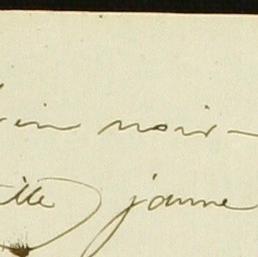 in noir-
ille jaune